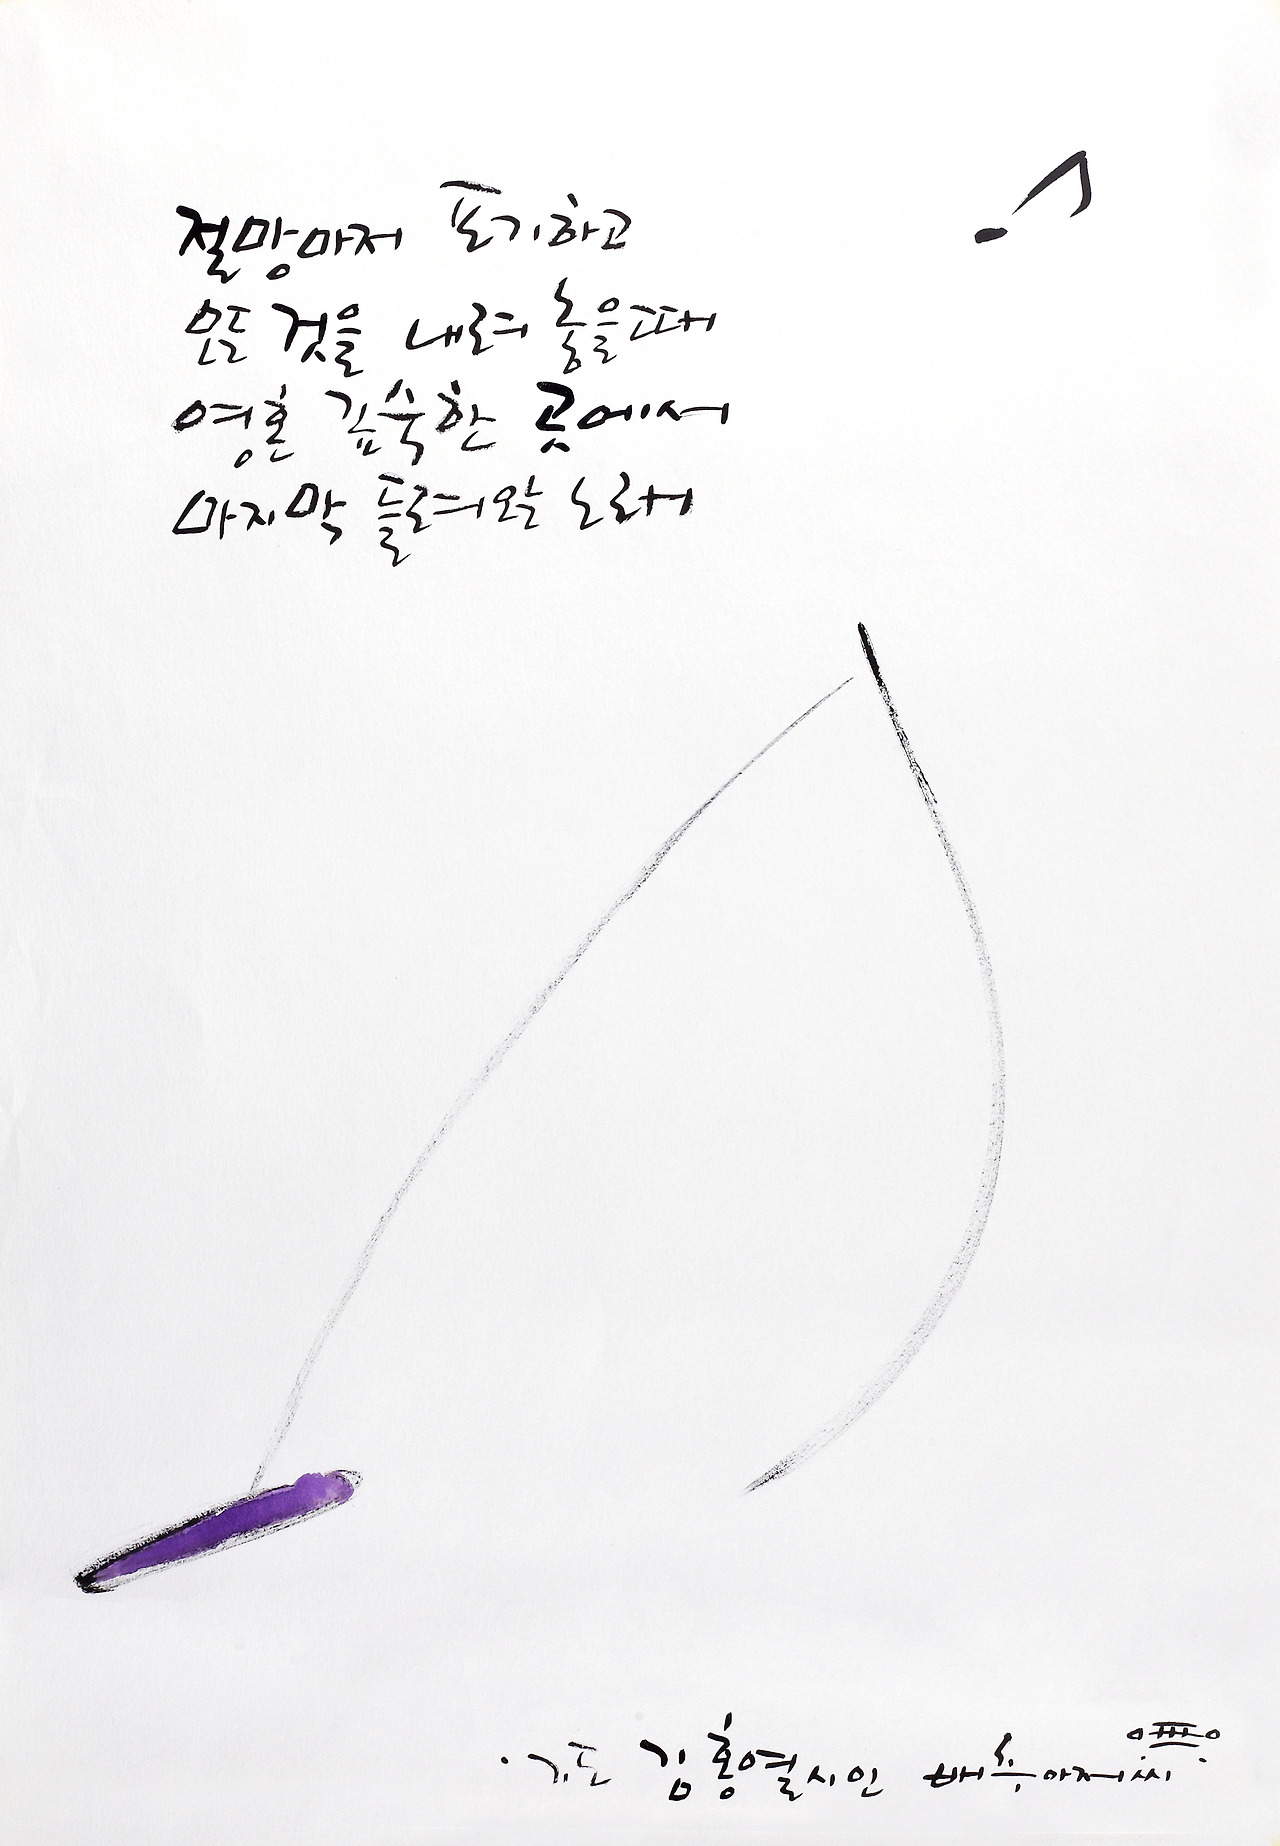 절망마저 포기하고
모든 것을 내려 놓을 때
영혼 깊숙한 곳에서
마지막 들려온 노래
·기도 김홍열시인 배추아저씨